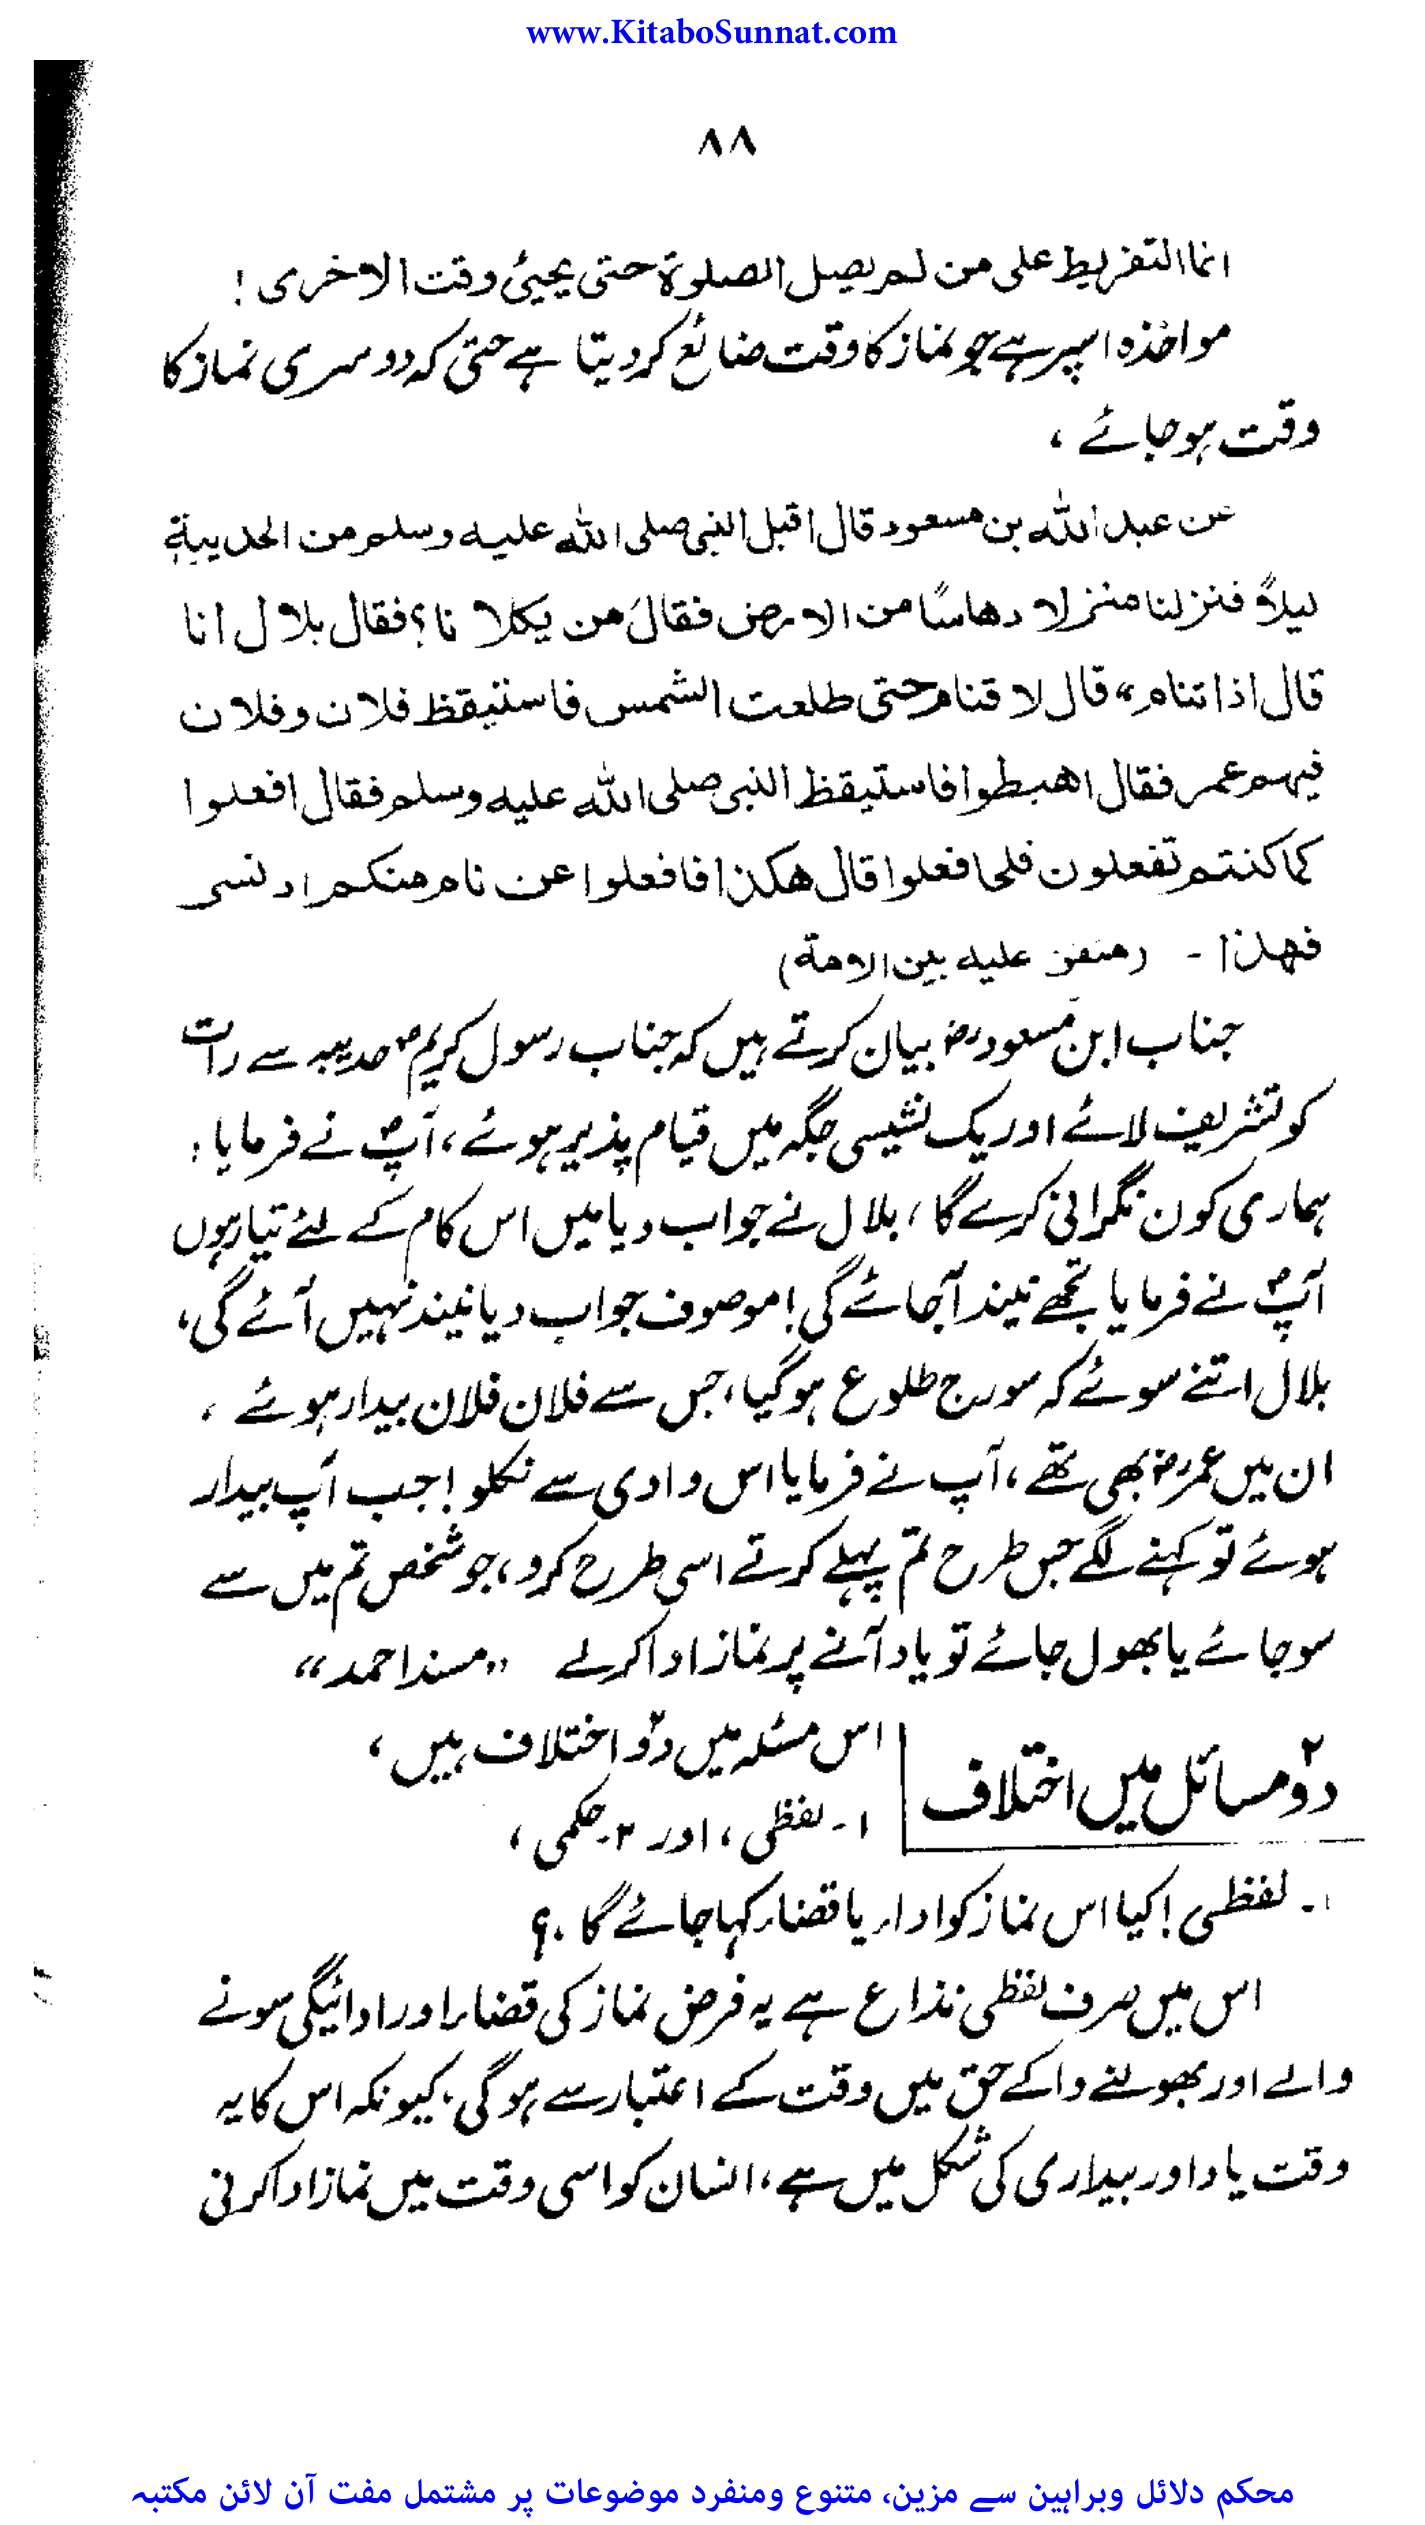 www.KitaboSunnat.com
۸۸
انما التفریط علی من لم یصل الصلوة حتی یجیئ وقت الاخری !
مواخذہ اسپر ہے جو نماز کا وقت ضائع کر دیتا ہے حتیٰ کہ دوسری نماز کا
وقت ہو جائے ،
عن عبد اللہ بن مسعود قال اقبل النبی صلی اللہ علیہ وسلم من الحدیبیة
لیلاً فنزلنا منزلا دھاسًا من الارض فقال من یکلا نا؟ فقال بلال انا
قال اذا تنام، قال لا فنام حتی طلعت الشمس فاستیقظ فلان وفلان
فیہم عمر فقال اھبطوا فاستیقظ النبی صلی اللہ علیہ وسلم فقال افعلوا
کما کنتم تفعلون فلما فعلوا قال ھکذا فافعلوا عن نام منکم او نسی
فھذا ۔ (متفق علیہ بین الامة)
جناب ابن مسعودؓ بیان کرتے ہیں کہ جناب رسول کریمؐ حدیبیہ سے رات
کو تشریف لائے اور یک نشیبی جگہ میں قیام پذیر ہوئے ، آپؐ نے فرمایا :
ہماری کون نگرانی کرے گا ، بلال نے جواب دیا میں اس کام کے لئے تیار ہوں
آپؐ نے فرمایا تجھے نیند آ جائے گی ! موصوف جواب دیا نیند نہیں آئے گی ،
بلال اتنے سوئے کہ سورج طلوع ہو گیا ، جس سے فلان فلان بیدار ہوئے ،
ان میں عمرؓ بھی تھے ، آپ نے فرمایا اس وادی سے نکلو ! جب آپ بیدار
ہوئے تو کہنے لگے جس طرح تم پہلے کرتے اسی طرح کرو ، جو شخص تم میں سے
سو جائے یا بھول جائے تو یاد آنے پر نماز ادا کرلے "مسند احمد"
دو۲ مسائل میں اختلاف
اس مسئلہ میں دو۲ اختلاف ہیں ،
۱۔ لفظی ، اور ۲۔ حکمی ،
۱۔ لفظی ! کیا اس نماز کو اداء یا قضاء کہا جائے گا ۔؟
اس میں صرف لفظی نذاع ہے یہ فرض نماز کی قضاء اور ادائیگی سونے
والے اور بھولنے والے کے حق میں وقت کے اعتبار سے ہو گی ، کیونکہ اس کا یہ
وقت یاد اور بیداری کی شکل میں ہے ، انسان کو اسی وقت میں نماز ادا کرنی
محکم دلائل وبراہین سے مزین، متنوع ومنفرد موضوعات پر مشتمل مفت آن لائن مکتبہ